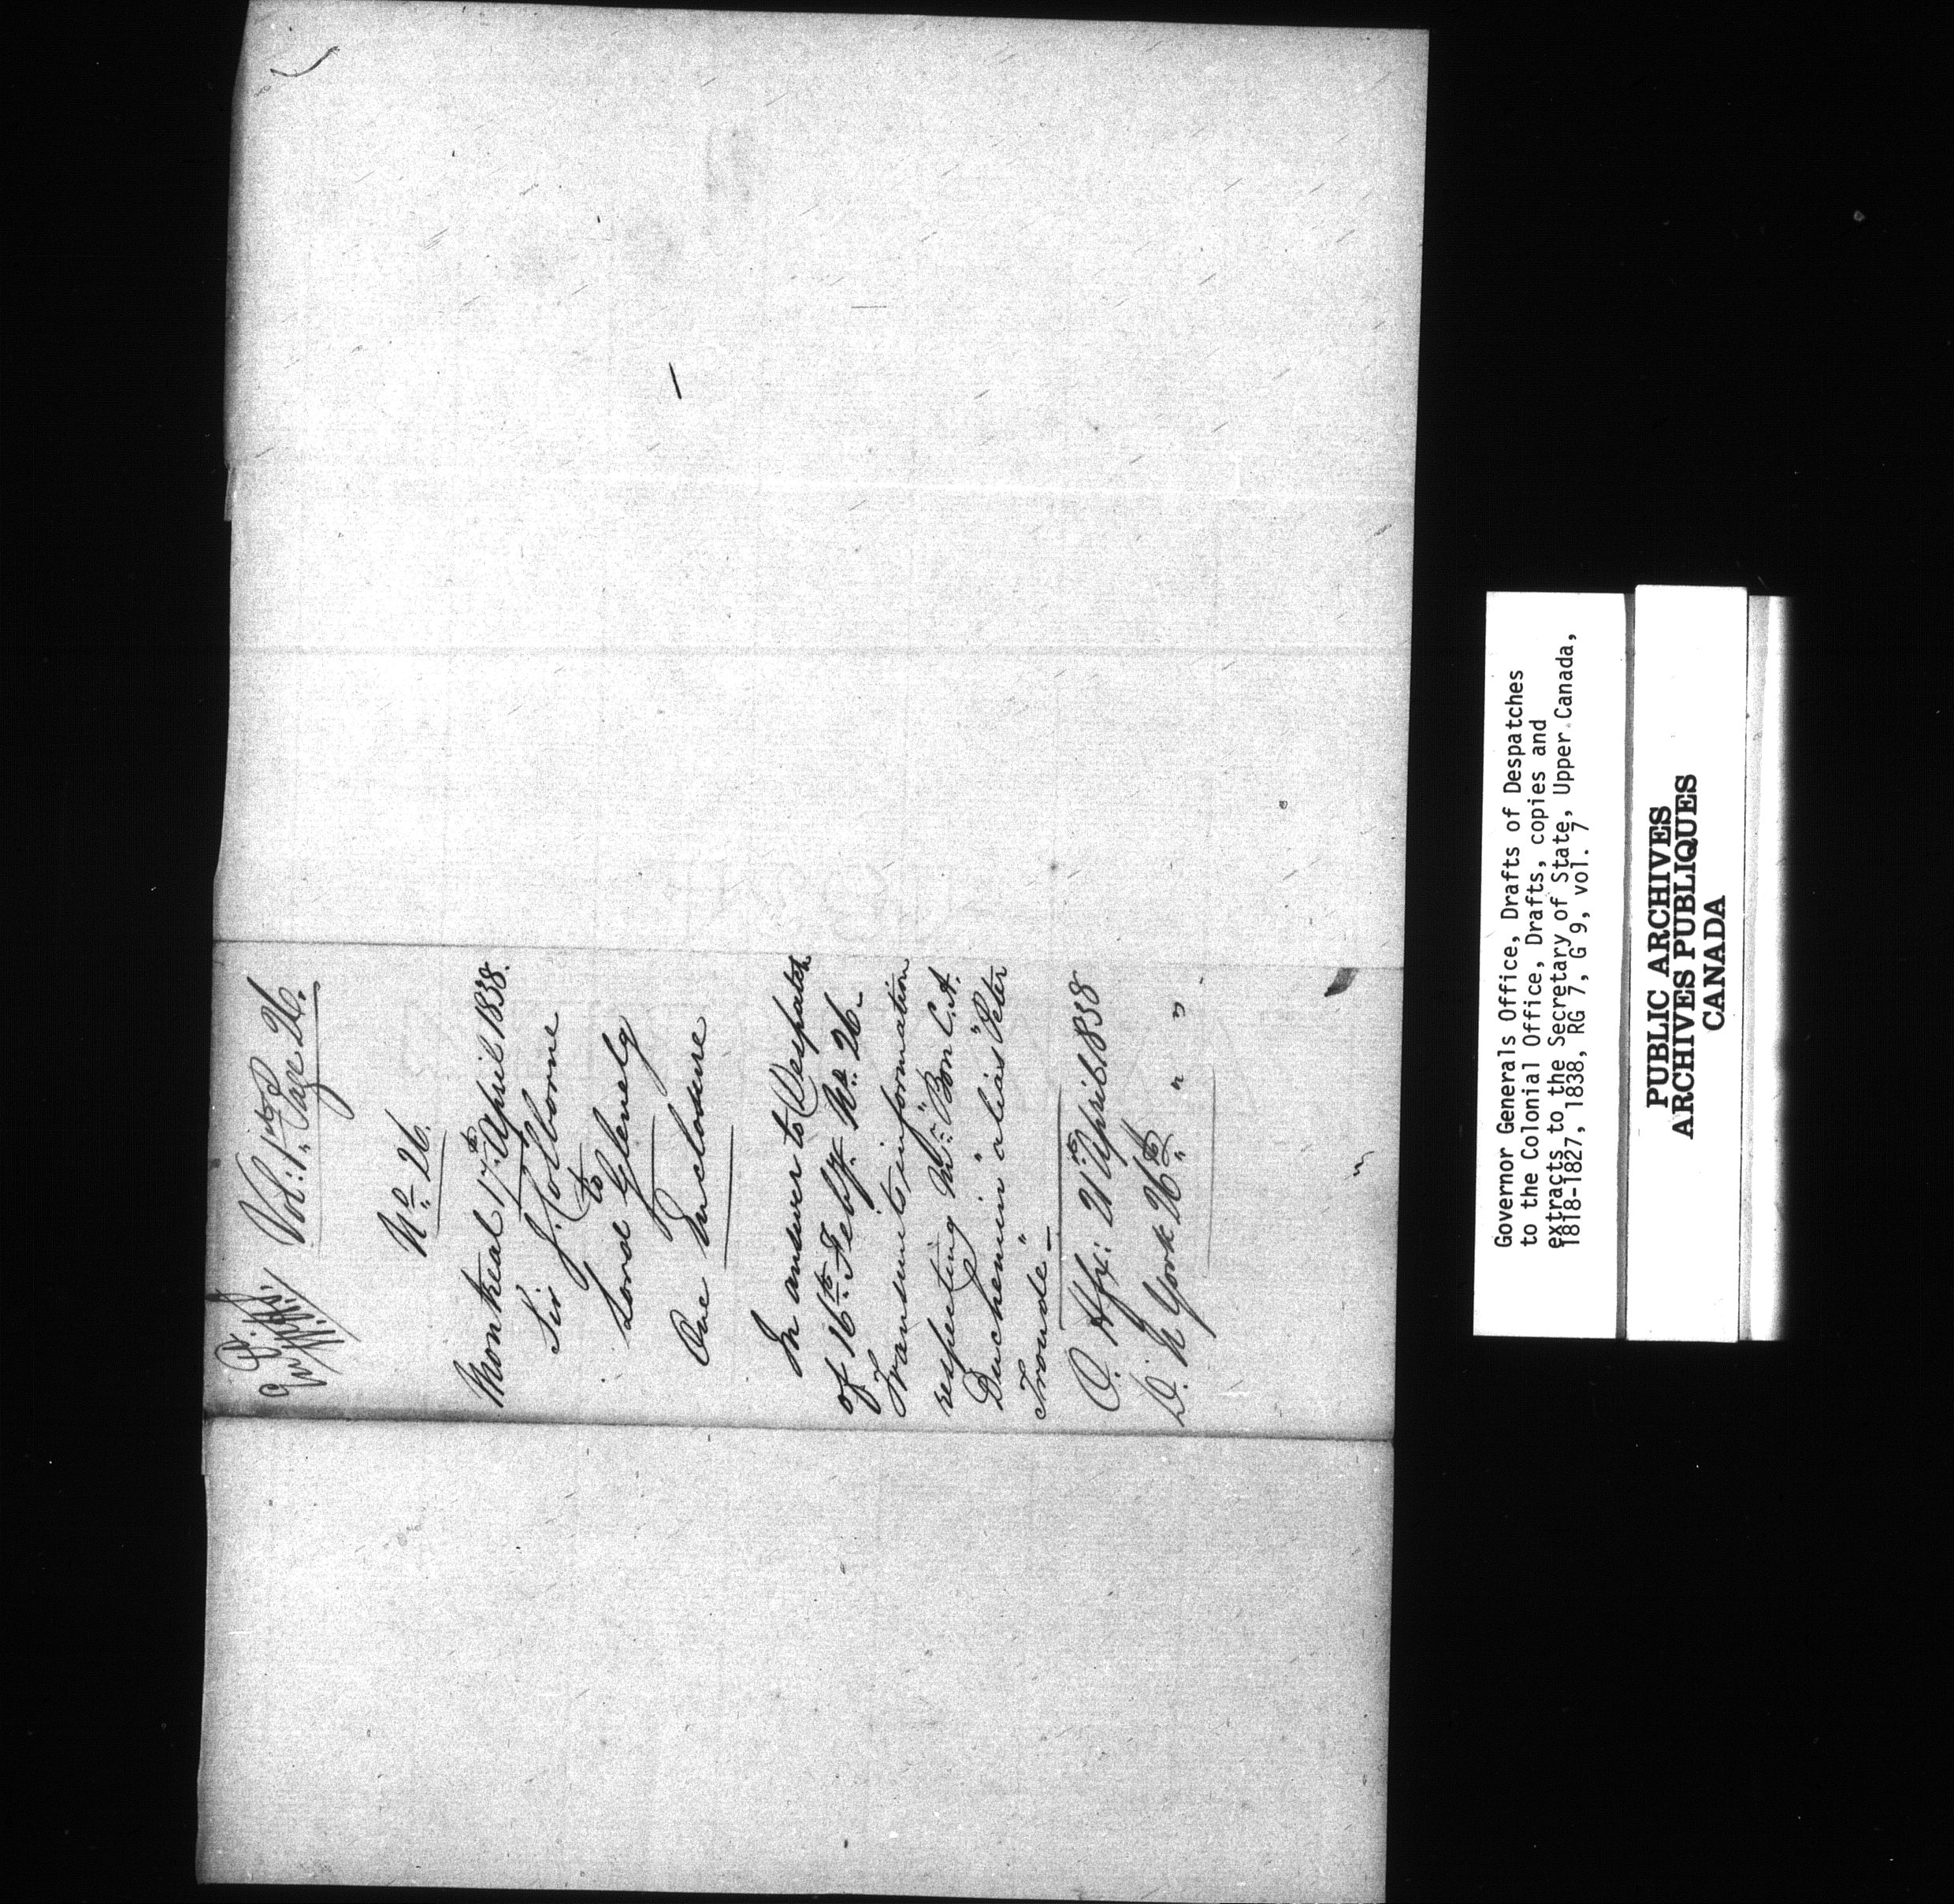 Vol: 1st Page 26.
No. 26.
Montreal 17th April 1838.
Sir J. Colborne
to
Lord Glenelg
One Inclosure
In answer to Despatch
of 16th Feby. No. 26-
Transmits information
respecting Mr. "Bon C. A.
Duchemin" alias "Peter
Tronde"-
O. Hfx: 21st April 1838
D. N York 26th " "
Governor Generals Office, Drafts of Despatches
to the Colonial Office, Drafts, copies and
extracts to the Secretary of State, Upper Canada,
1818-1827, 1838, RG 7, G 9, vol. 7
PUBLIC ARCHIVES
ARCHIVES PUBLIQUES
CANADA